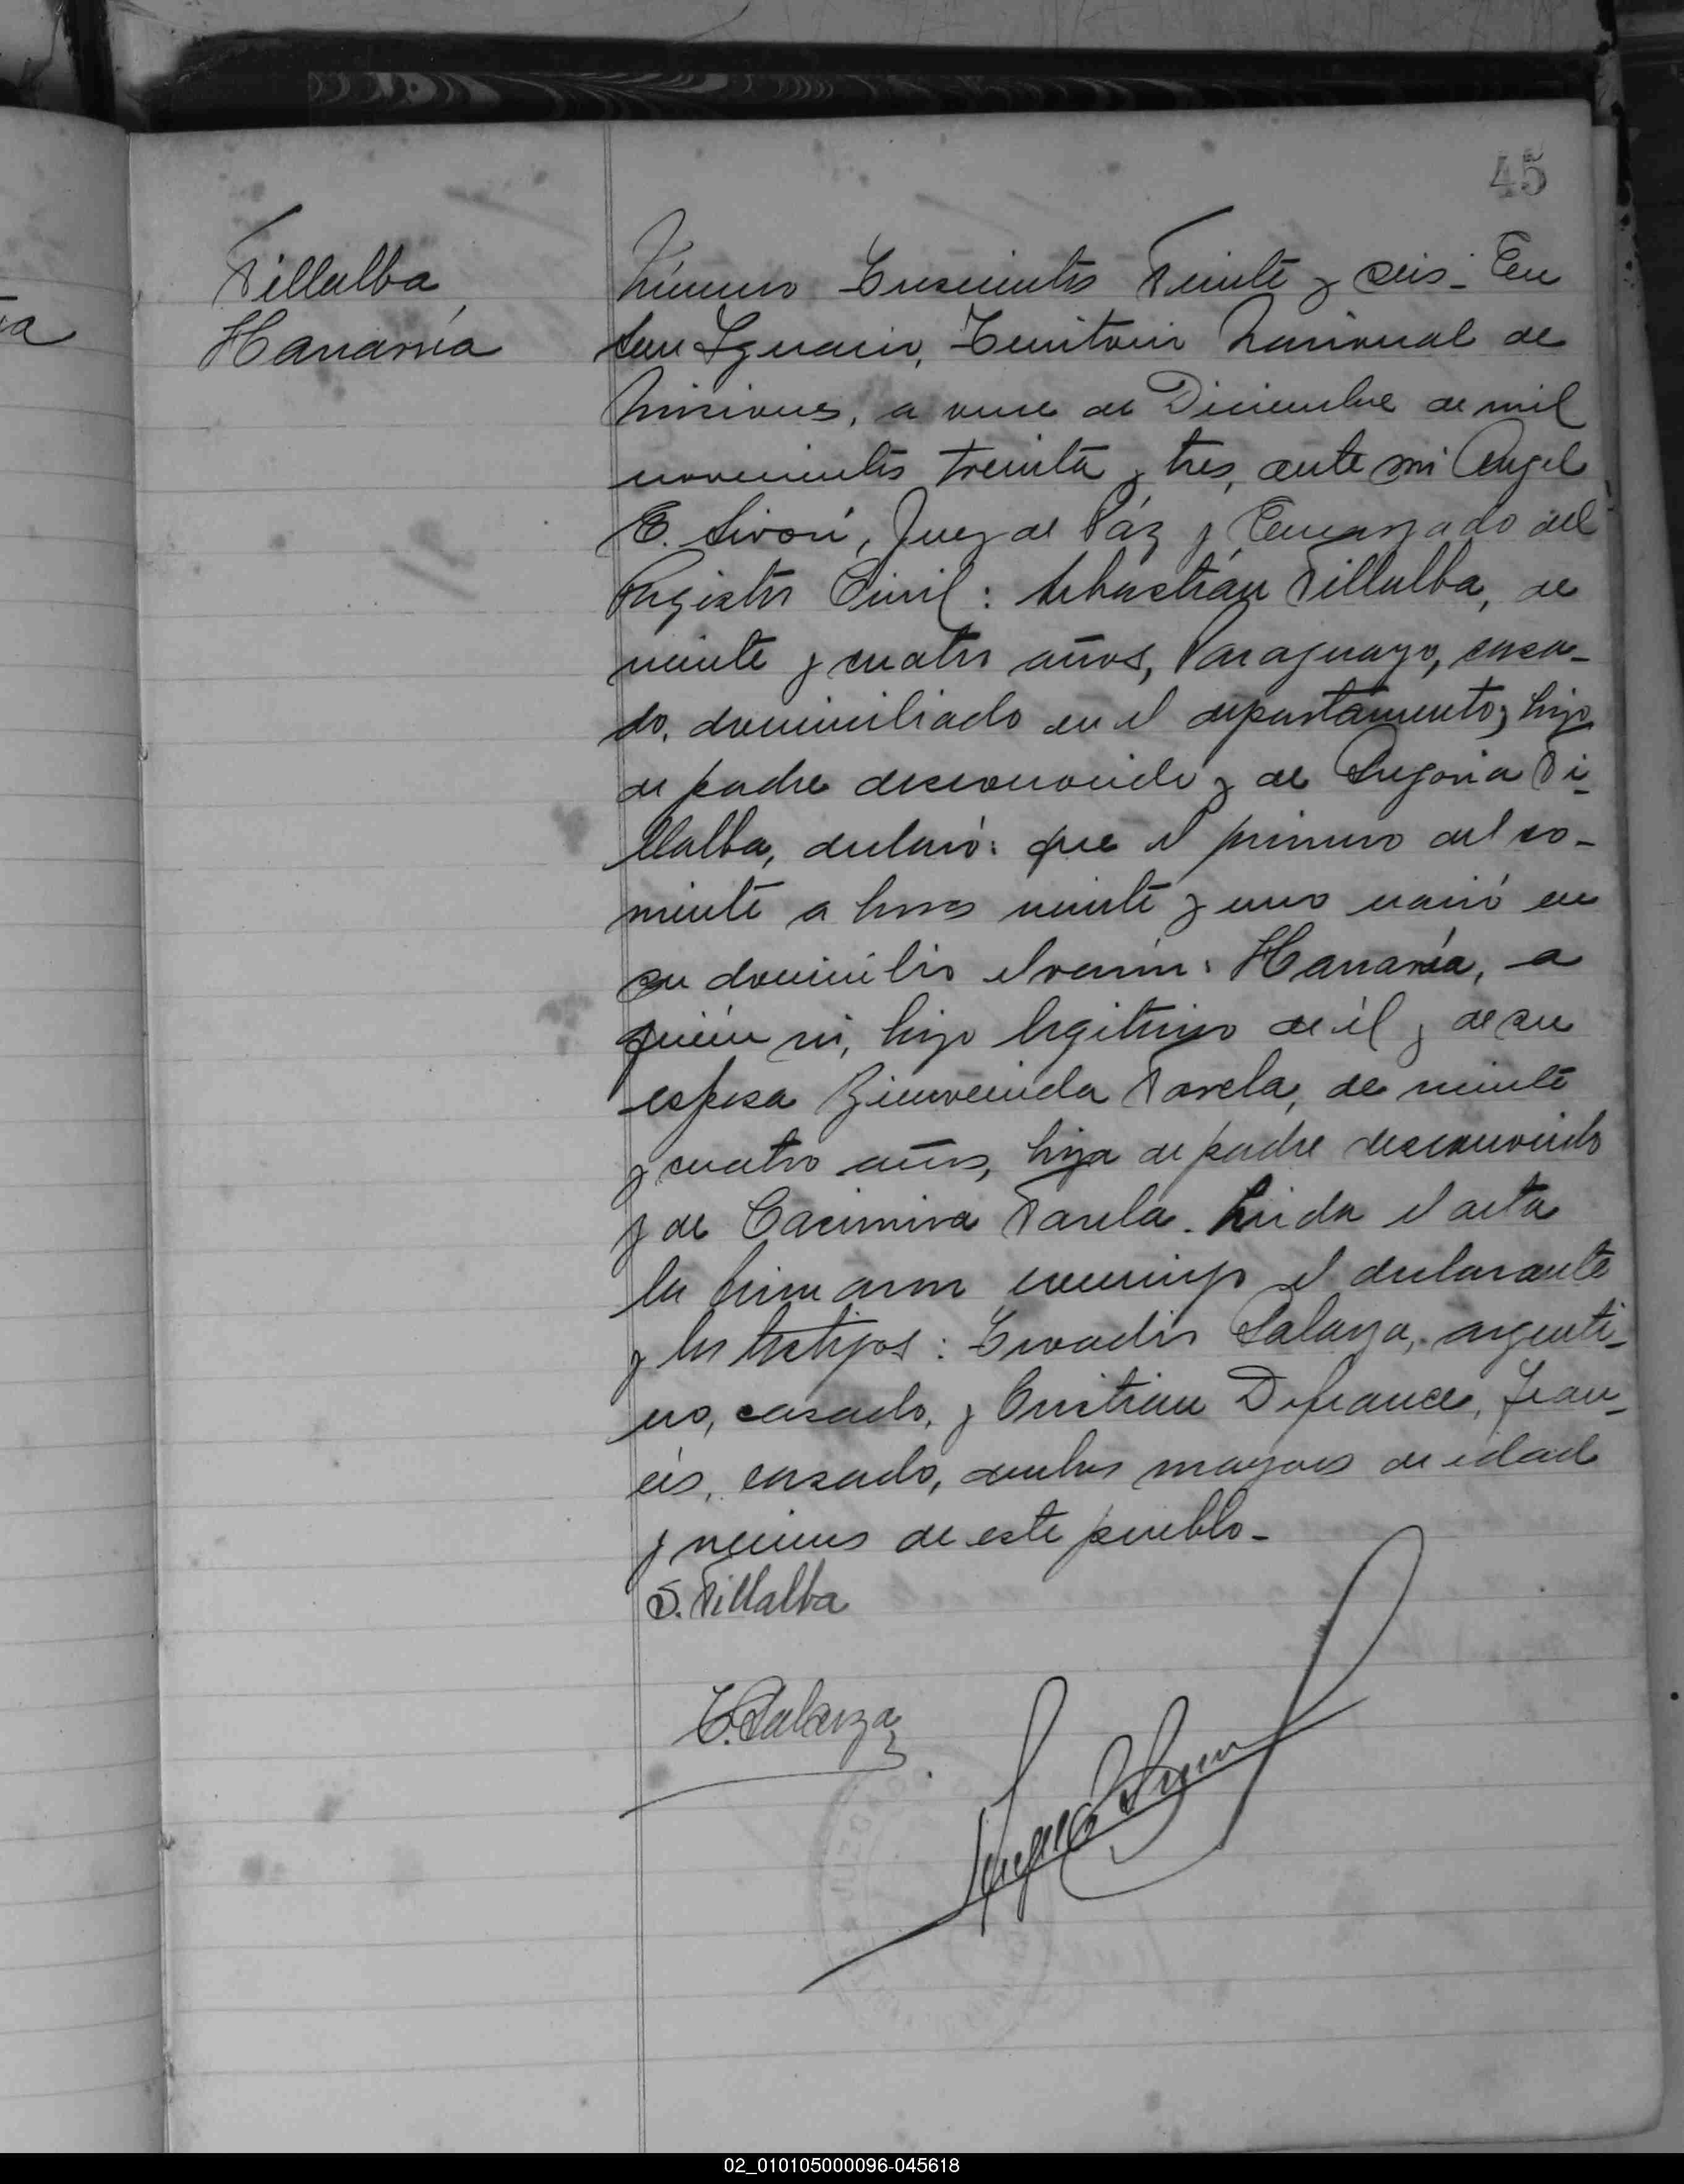 45
Villalba
Hananía
Número Trescientos Veinte y seis- En
San Ignacio, Territorio Nacional de
Misiones, a once de Diciembre de mil
novecientos treinta y tres, ante mi Angel
E. Sivori, Juez de Páz y Encargado del
Registro Civil: Sebastián Villalba, de
veinte y cuatro años, Paraguayo, casa-
do, domiciliado en el departamento, hijo
de padre desconocido y de Gregoria Vi-
llalba, declaró: que el primero del co-
rriente a horas veinte y uno nació en
su domicilio el varón: Hananía, a
quien vi, hijo legítimo de él y de su
esposa Bienvenida Varela, de veinte
y cuatro años, hija de padre desconocido
y de Casimira Varela. Leida el acta
la firmaron conmigo el declarante
y los testigos: Evadis Galarza, argenti-
no, casado, y Cristian Defrance, fran-
cés, casado, ambos mayores de edad
y vecinos de este pueblo-
S. Villalba
E. Galarza
02_010105000096-045618